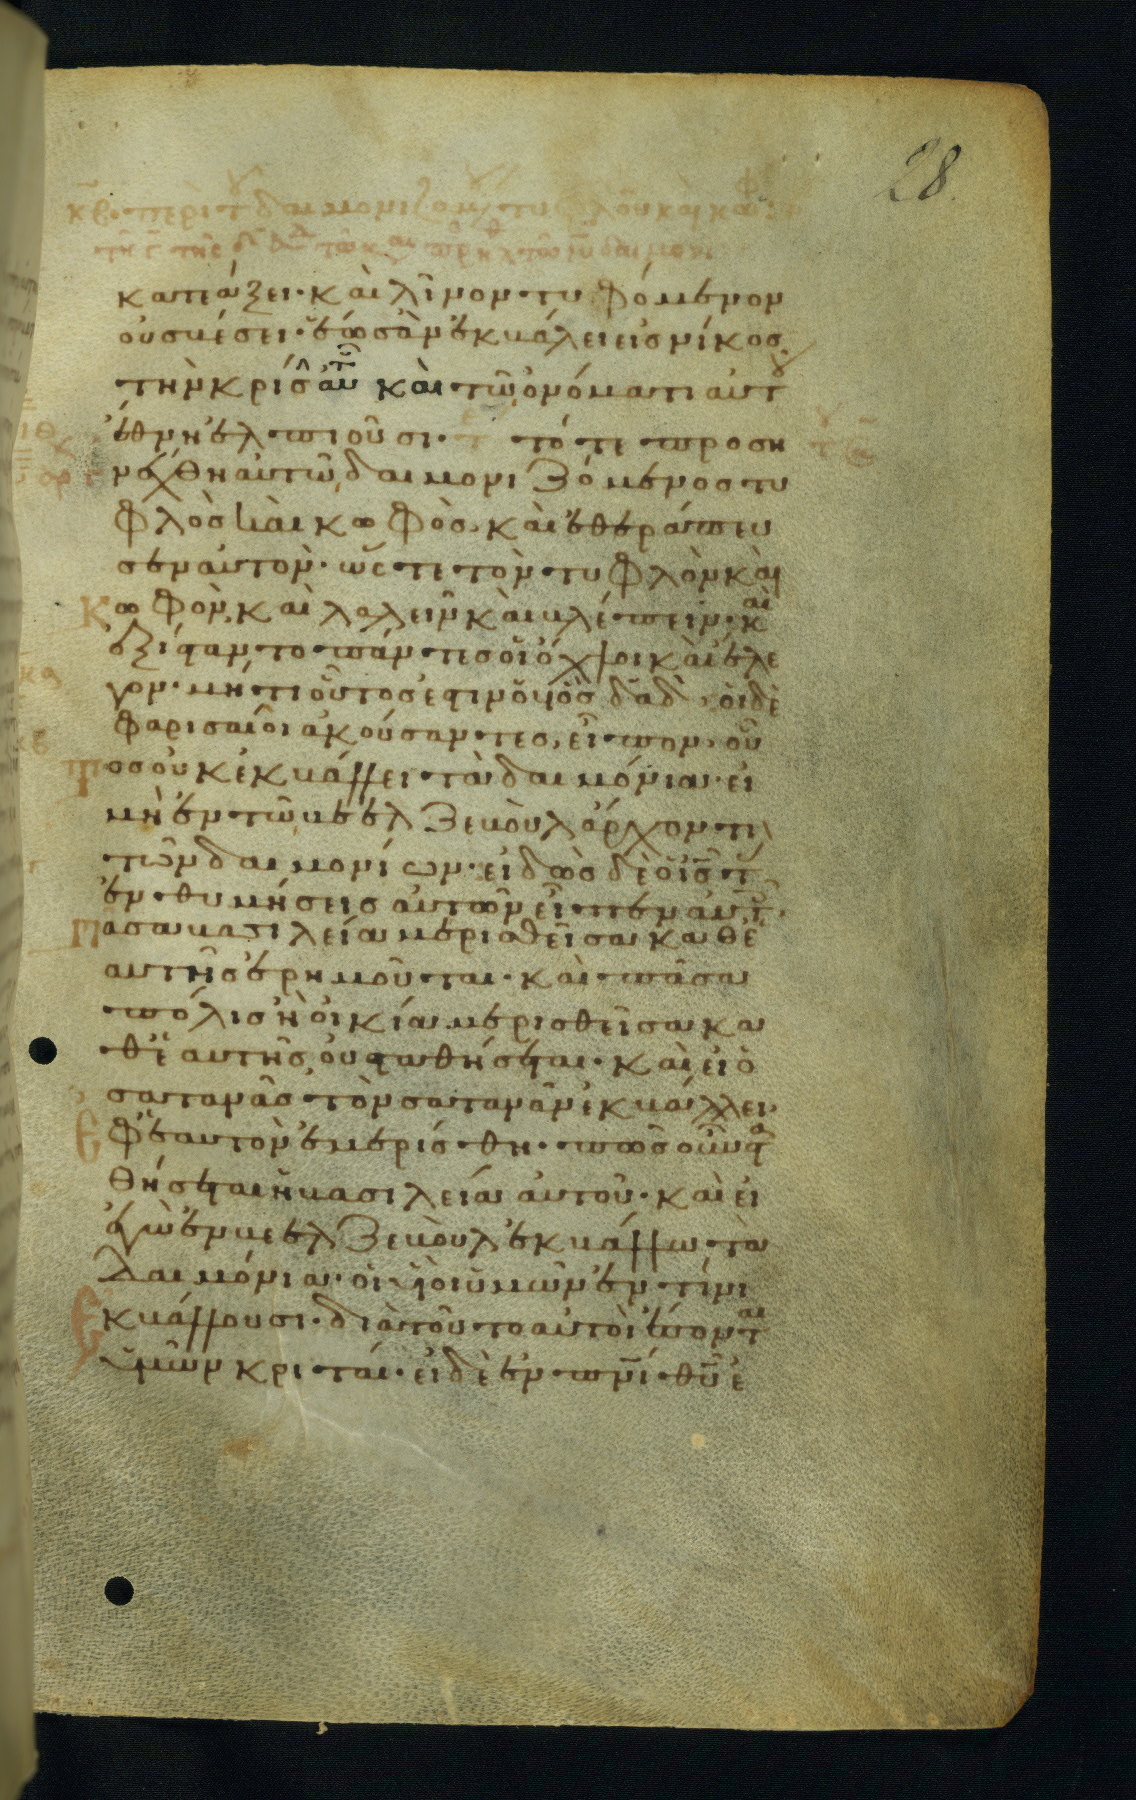 28
κβ περὶ τ δαιμονιζομ τυφλοῦ καὶ κωφ
κατεάξει· καὶ λίνον τυφόμενον
οὐ σβέσει· ἕως ἂν ἐκβάλει εἰς νίκος
τὴν κρίσ αὐτ καὶ τῶ ὀνόματι αὐτ
ἔθνη ἐλπιοῦσι· τότε προση
νέχθη αὐτῶ δαιμονιζόμενος τυ
φλὸς καὶ κωφὸς, καὶ ἐθεράπευ
σεν αὐτόν· ὥστε τὸν τυφλὸν καὶ
κωφὸν, καὶ λαλεῖν καὶ βλέπειν· καὶ
ἐξίσταντο πάντες οἱ ὄχλοι καὶ ἔλε
γον· μήτι οὗτος ἐστιν ὁ υἱὸς δαδ· οἱ δὲ
φαρισαῖοι ἀκούσαντες, εἶπον, οὗ
τος οὐκ ἐκβάλλει τὰ δαιμόνια· εἰ
μὴ ἐν τῶ βεελζεβοὺλ ἄρχοντι
τῶν δαιμονίων· εἰδὼς δὲ ὁ ις τ
ἐνθυμήσεις αὐτῶν εἶπεν αὐτ·
πᾶσα βασιλεία μερισθεῖσα καθ ἑ
αυτῆς ἐρημοῦται· καὶ πᾶσα
πόλις ἢ οἰκία μερισθεῖσα κα
θ ἑαυτῆς οὐ σταθήσεται· καὶ εἰ ὁ
σατανᾶς τὸν σατανᾶν ἐκβάλλει
ἐφ ἑαυτὸν ἐμερίσθη· πῶς οὖν στα
θήσεται ἡ βασιλεία αὐτοῦ· καὶ εἰ
ἐγὼ ἐν βεελζεβοὺλ ἐκβάλλω τὰ
δαιμόνια· οἱ υἱοὶ ὑμῶν ἐν τίνι
ἐκβάλλουσι· διὰ τοῦτο αὐτοὶ ἔσονται
ὑμῶν κριταί· εἰ δὲ ἐν πνι θυ ἐ